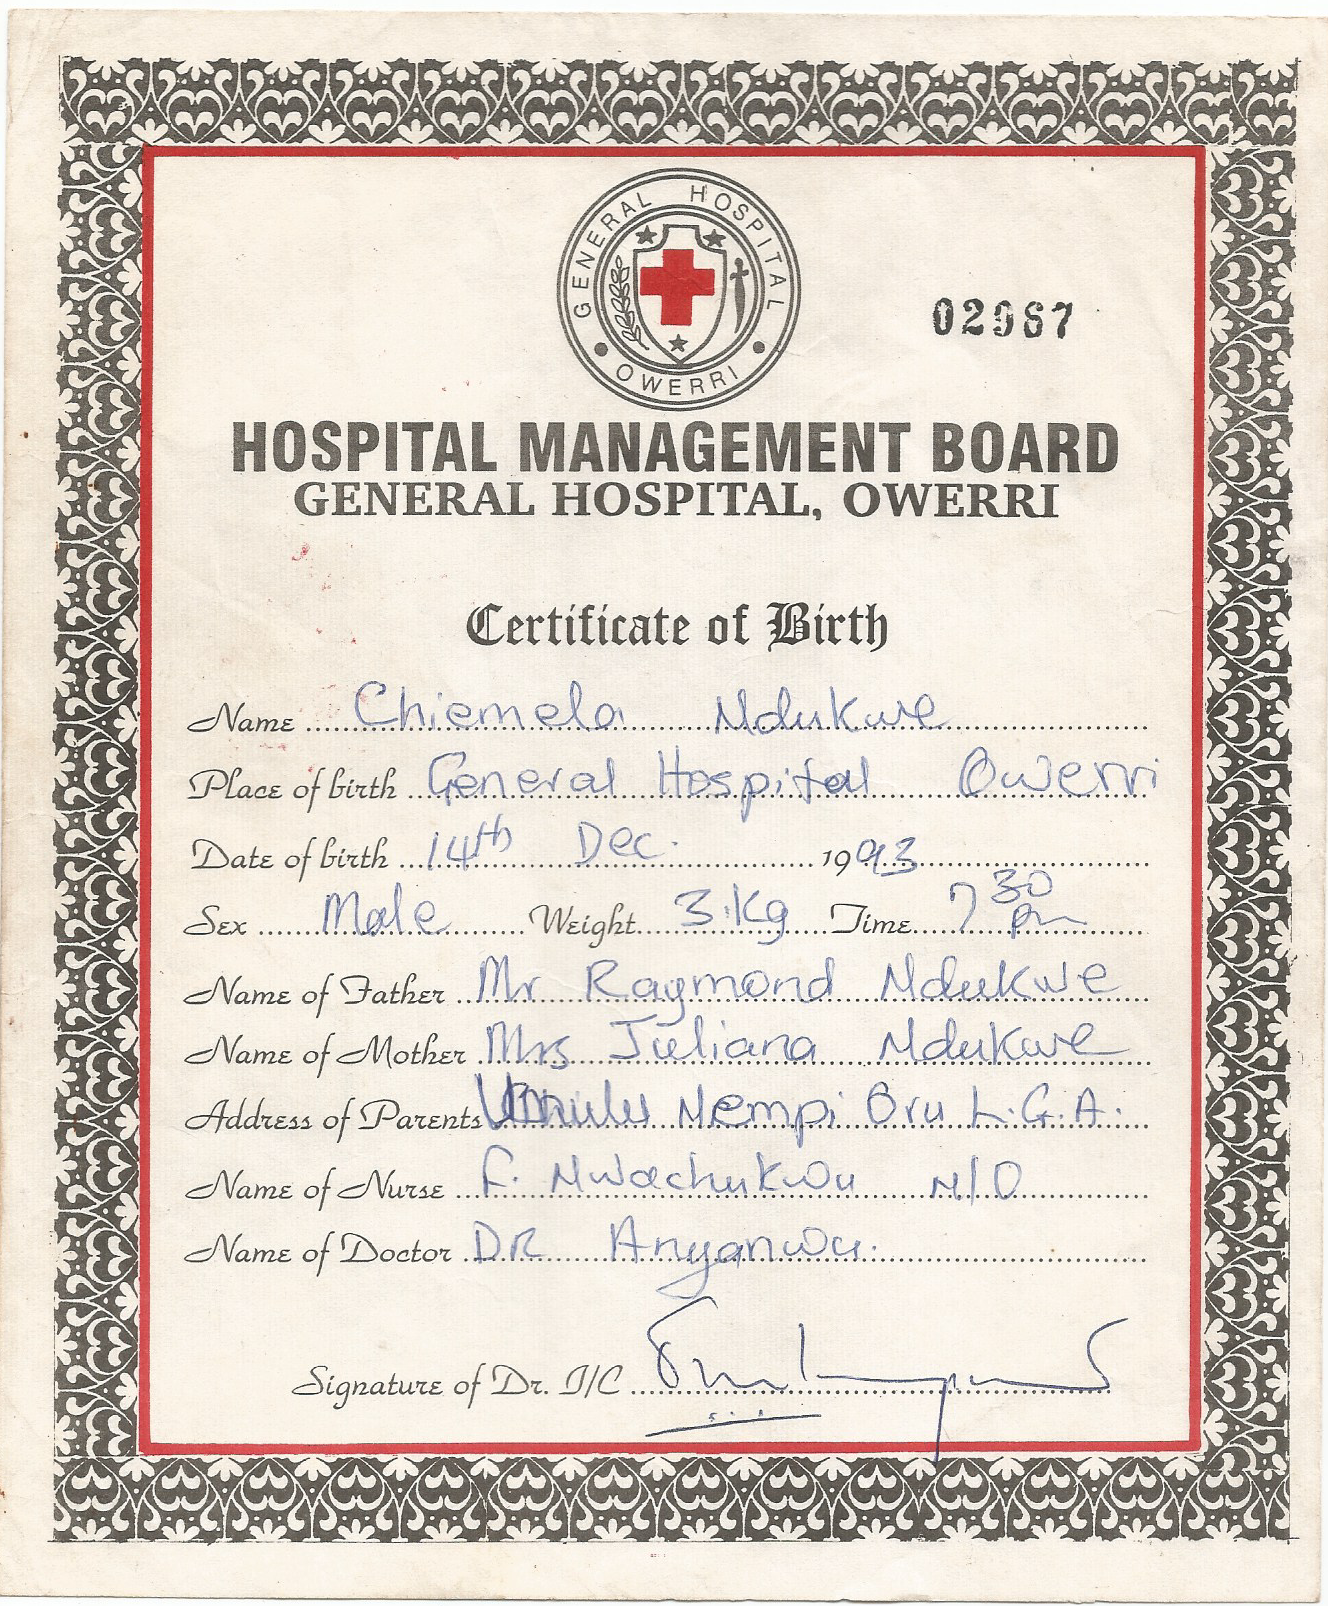 GENERAL HOSPITAL
OWERRI
02967
HOSPITAL MANAGEMENT BOARD
GENERAL HOSPITAL, OWERRI
Certificate of Birth
Name Chiemela Ndukwe
Place of birth General Hospital Owerri
Date of birth 14th Dec. 1993
Sex Male Weight 3.Kg Time 7 30 pm
Name of Father Mr Raymond Ndukwe
Name of Mother Mrs Juliana Ndukwe
Address of Parents Nempi Oru L.G.A.
Name of Nurse F. Nwachukwu N/O
Name of Doctor DR Anyanwu.
Signature of Dr. I/C